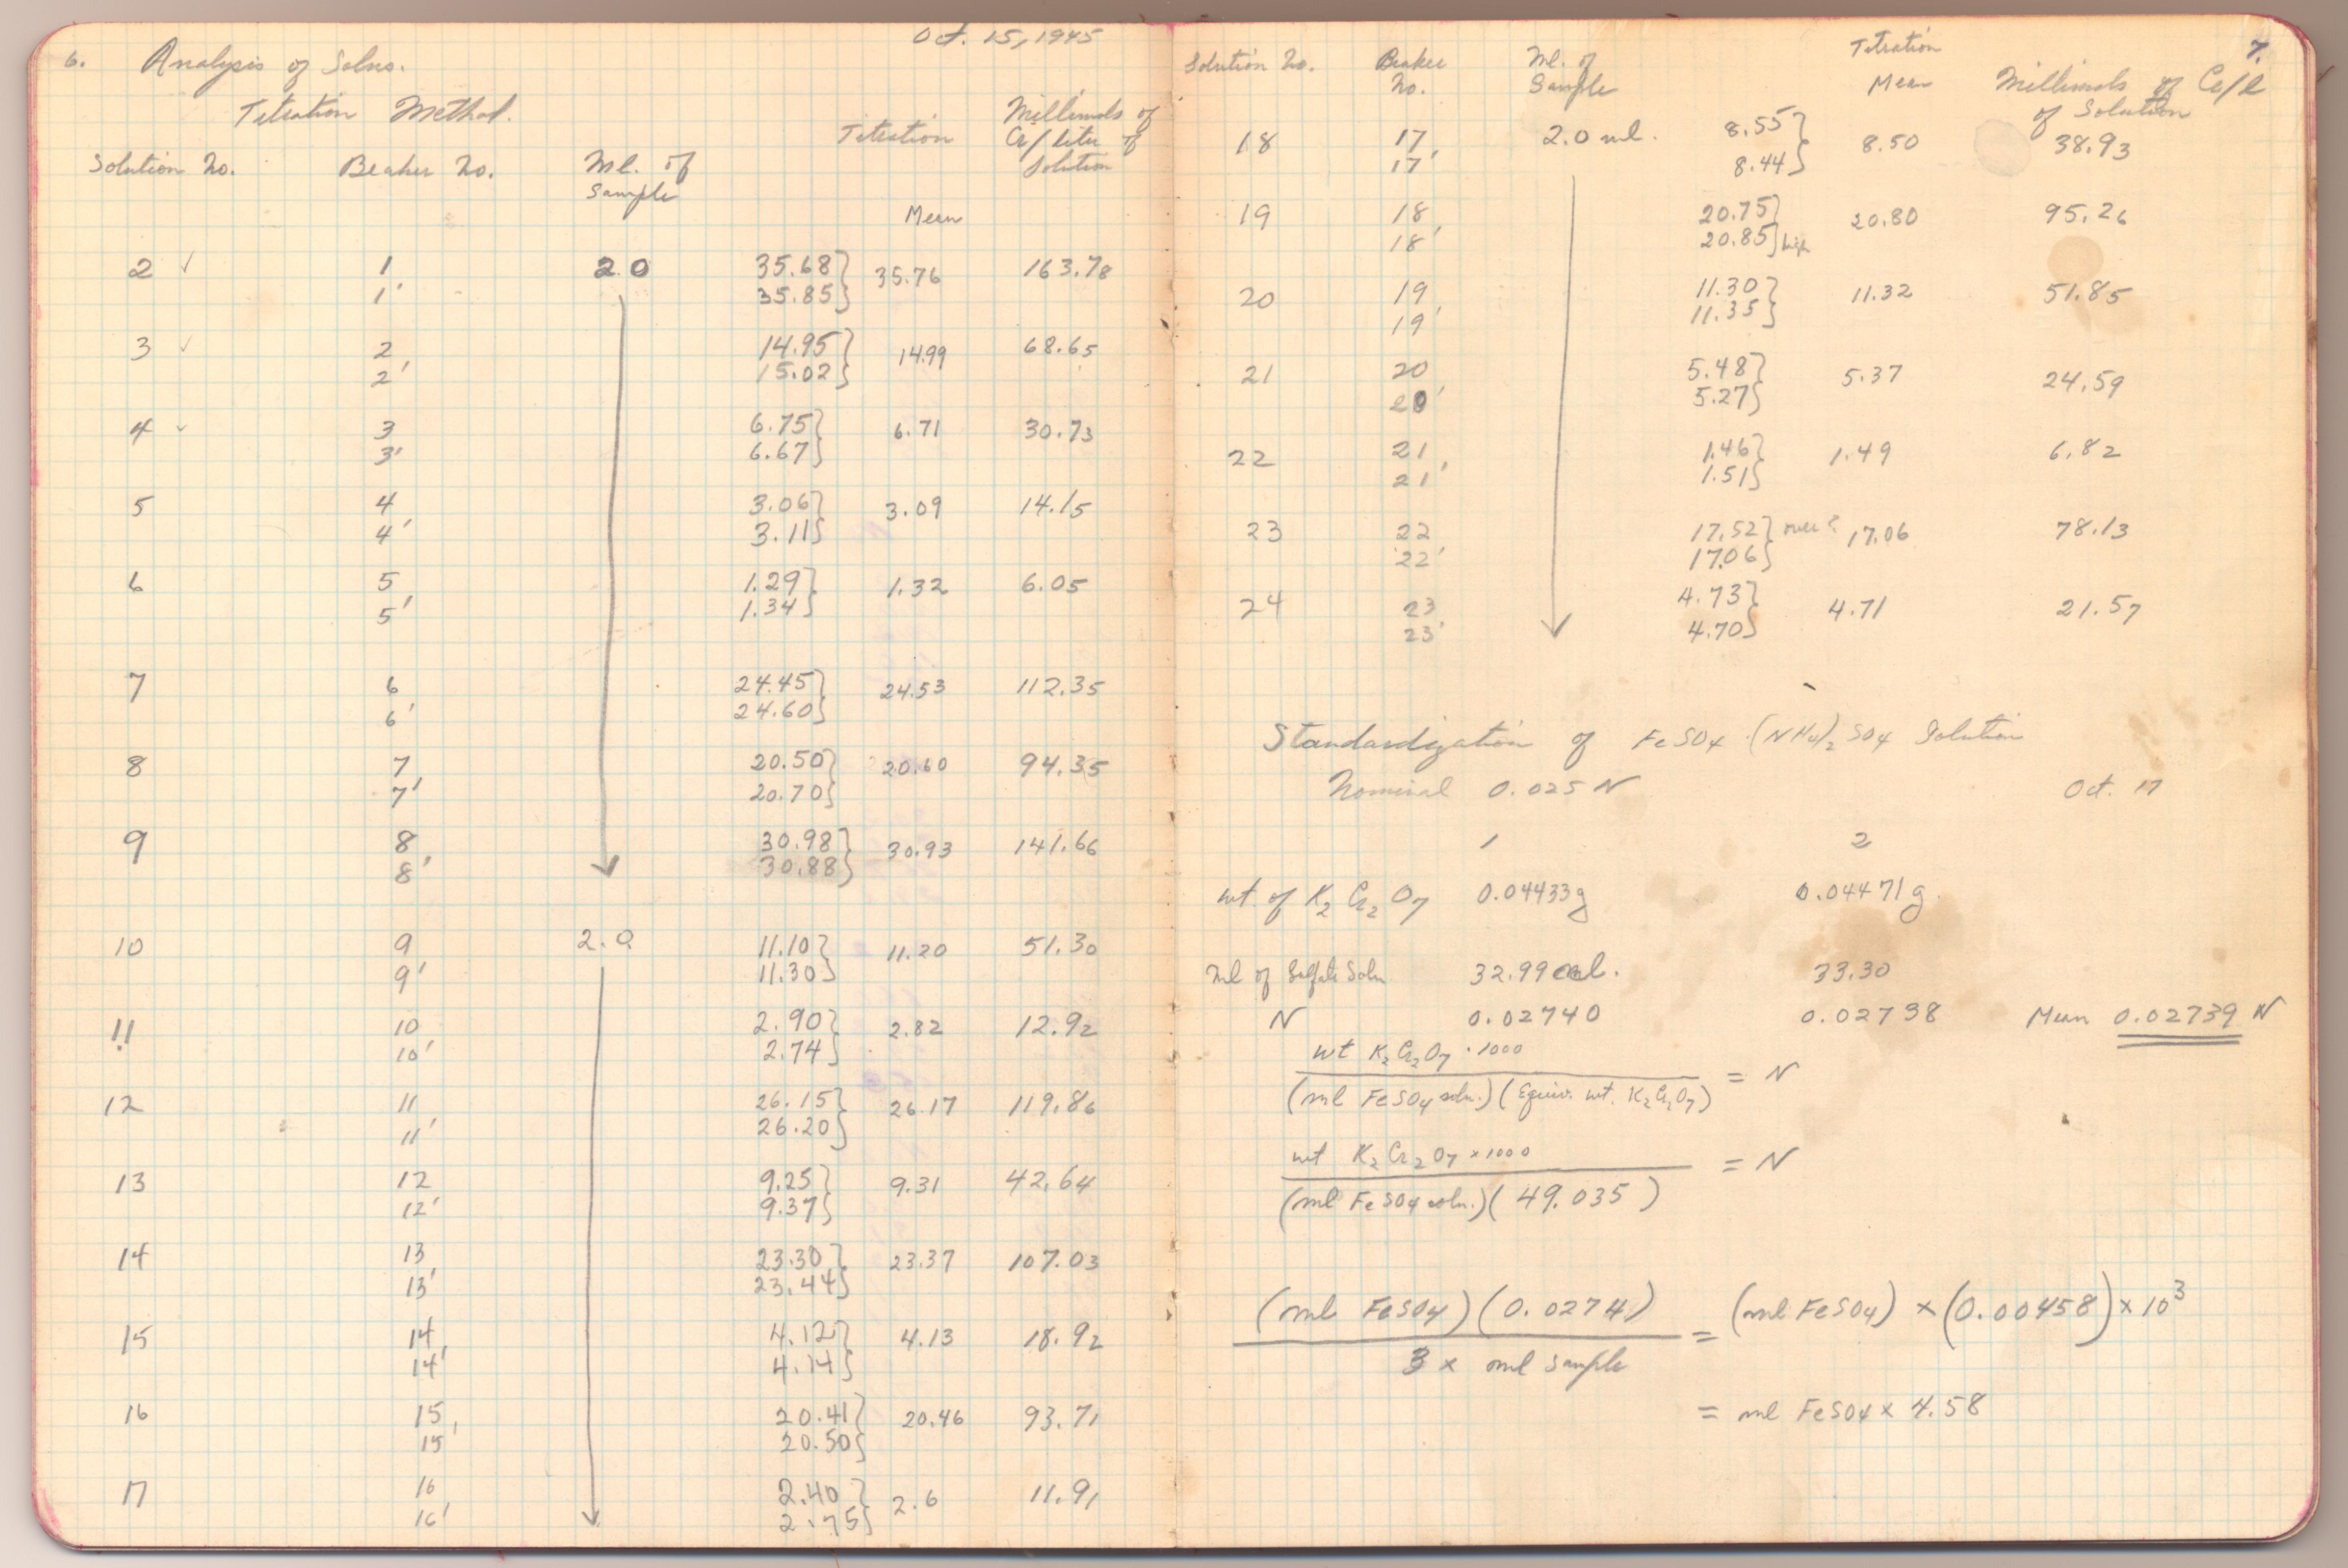 6. Analysis of Solns. Oct. 15, 1945
Titration Method.
Solution No. Beaker No. Ml. of Sample Titration Mean Millimols of Cr/liter of Solution
2 ✓ 1 2.0 35.68 35.76 163.78
1' 35.85
3 ✓ 2 14.95 14.99 68.65
2' 15.02
4 ✓ 3 6.75 6.71 30.73
3' 6.67
5 4 3.06 3.09 14.15
4' 3.11
6 5 1.29 1.32 6.05
5' 1.34
7 6 24.45 24.53 112.35
6' 24.60
8 7 20.50 20.60 94.35
7' 20.70
9 8 30.98 30.93 141.66
8' 30.88
10 9 2.0 11.10 11.20 51.30
9' 11.30
11 10 2.90 2.82 12.92
10' 2.74
12 11 26.15 26.17 119.86
11' 26.20
13 12 9.25 9.31 42.64
12' 9.37
14 13 23.30 23.37 107.03
13' 23.44
15 14 4.12 4.13 18.92
14' 4.14
16 15 20.41 20.46 93.71
15' 20.50
17 16 2.40 2.6 11.91
16' 2.75
7.
Solution No. Beaker No. Ml. of Sample Titration Mean Millimols of Cr/l of Solution
18 17 2.0 ml. 8.55 8.50 38.93
17' 8.44
19 18 20.75 20.80 95.26
18' 20.85 high
20 19 11.30 11.32 51.85
19' 11.35
21 20 5.48 5.37 24.59
20' 5.27
22 21 1.46 1.49 6.82
21' 1.51
23 22 17.52 over? 17.06 78.13
22' 17.06
24 23 4.73 4.71 21.57
23' 4.70
Standardization of FeSO4·(NH4)2SO4 Solution
Nominal 0.025 N Oct. 17
1 2
wt. of K2Cr2O7 0.04433g 0.04471g.
Ml of Sulfate Soln 32.99 ml. 33.30
N 0.02740 0.02738 Mean 0.02739 N
wt K2Cr2O7 · 1000
= N
(ml FeSO4 soln.)(Equiv. wt. K2Cr2O7)
wt K2Cr2O7 x 1000
= N
(ml FeSO4 soln.)(49.035)
(ml FeSO4)(0.0274) = (ml FeSO4) x (0.00458) x 10³
3 x ml sample
= ml FeSO4 x 4.58